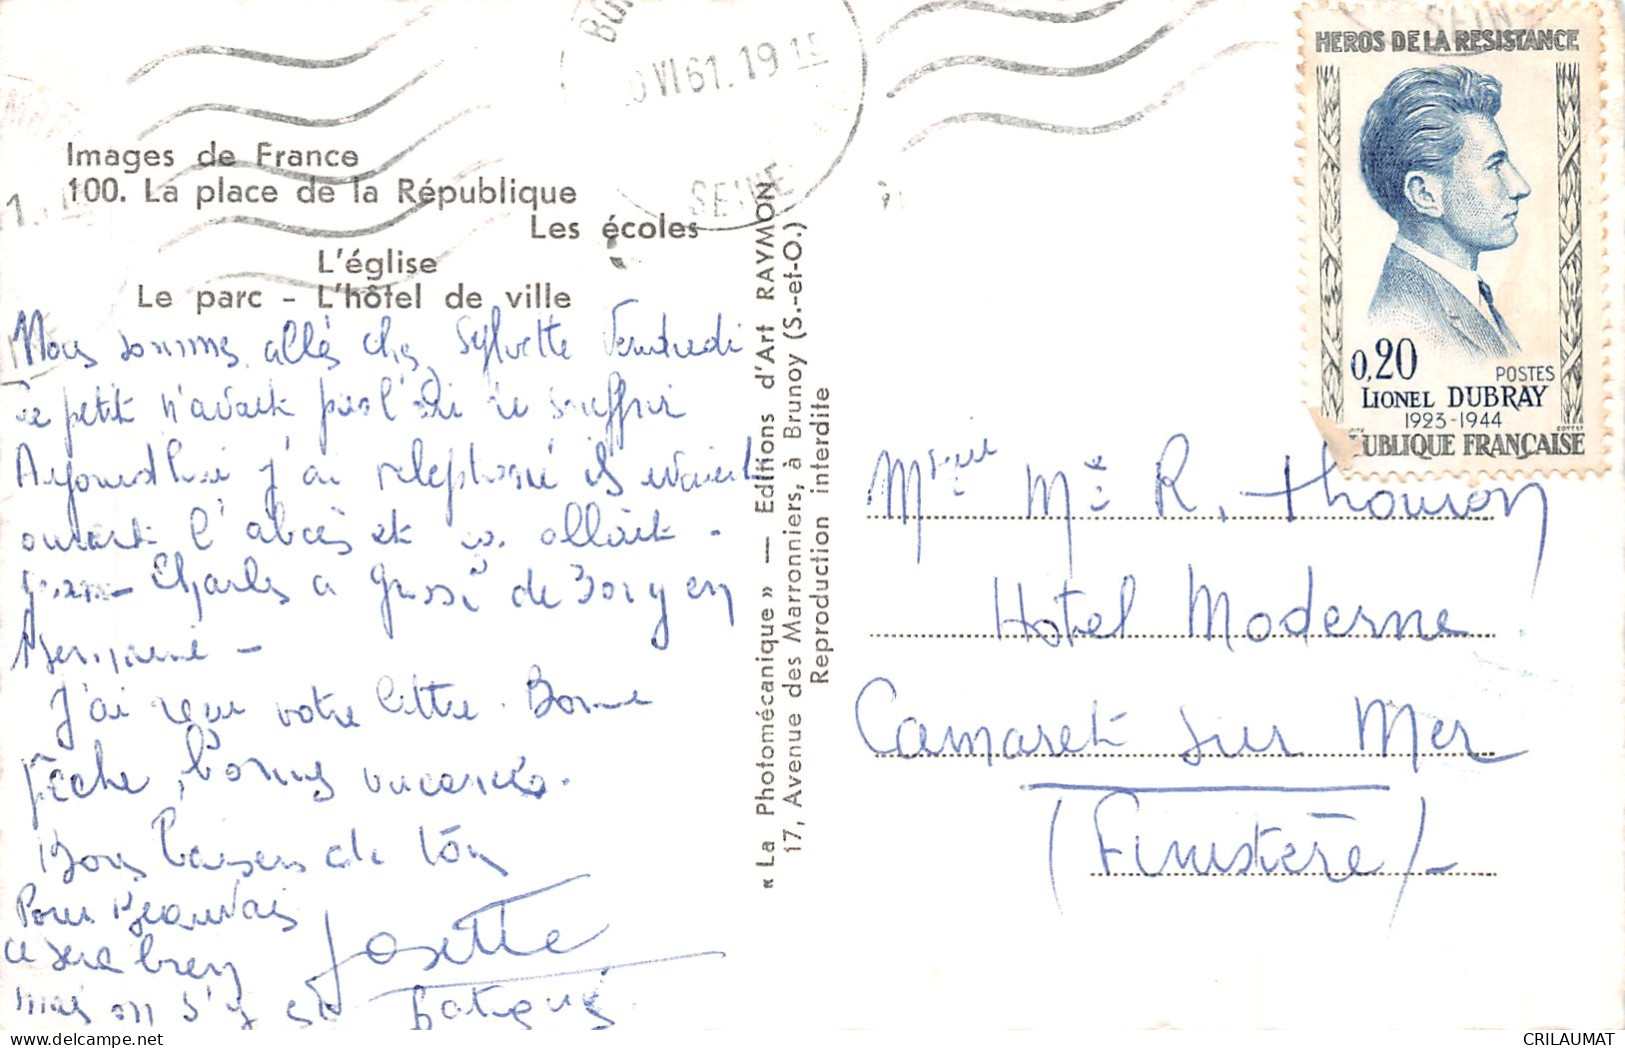 VI 61. 19 15
SEINE
HEROS DE LA RESISTANCE
0,20
POSTES
LIONEL DUBRAY
1923-1944
UBLIQUE FRANÇAISE
Images de France
100. La place de la République
Les écoles
L'église
Le parc - L'hôtel de ville
Nous sommes allés chez Sylvette Vendredi
Le petit n'avait pas l'air de souffrir
Aujourd'hui j'ai telephoné ils avaient
ouvert l'abcès et ça allait -
Jean-Charles a grossi de 30r
J'ai reçu votre lettre. Bonne
pêche, bonnes vacances.
Bons baisers de tous
Pour Beauvais
ce sera bien
mais on s'y est fatigué
Josette
« La Photomécanique » — Editions d'Art RAYMON
17, Avenue des Marronniers, à Brunoy (S.-et-O.)
Reproduction interdite
Mr Me R. Thouron
Hotel Moderne
Camaret sur Mer
(Finistère)-
CRILAUMAT